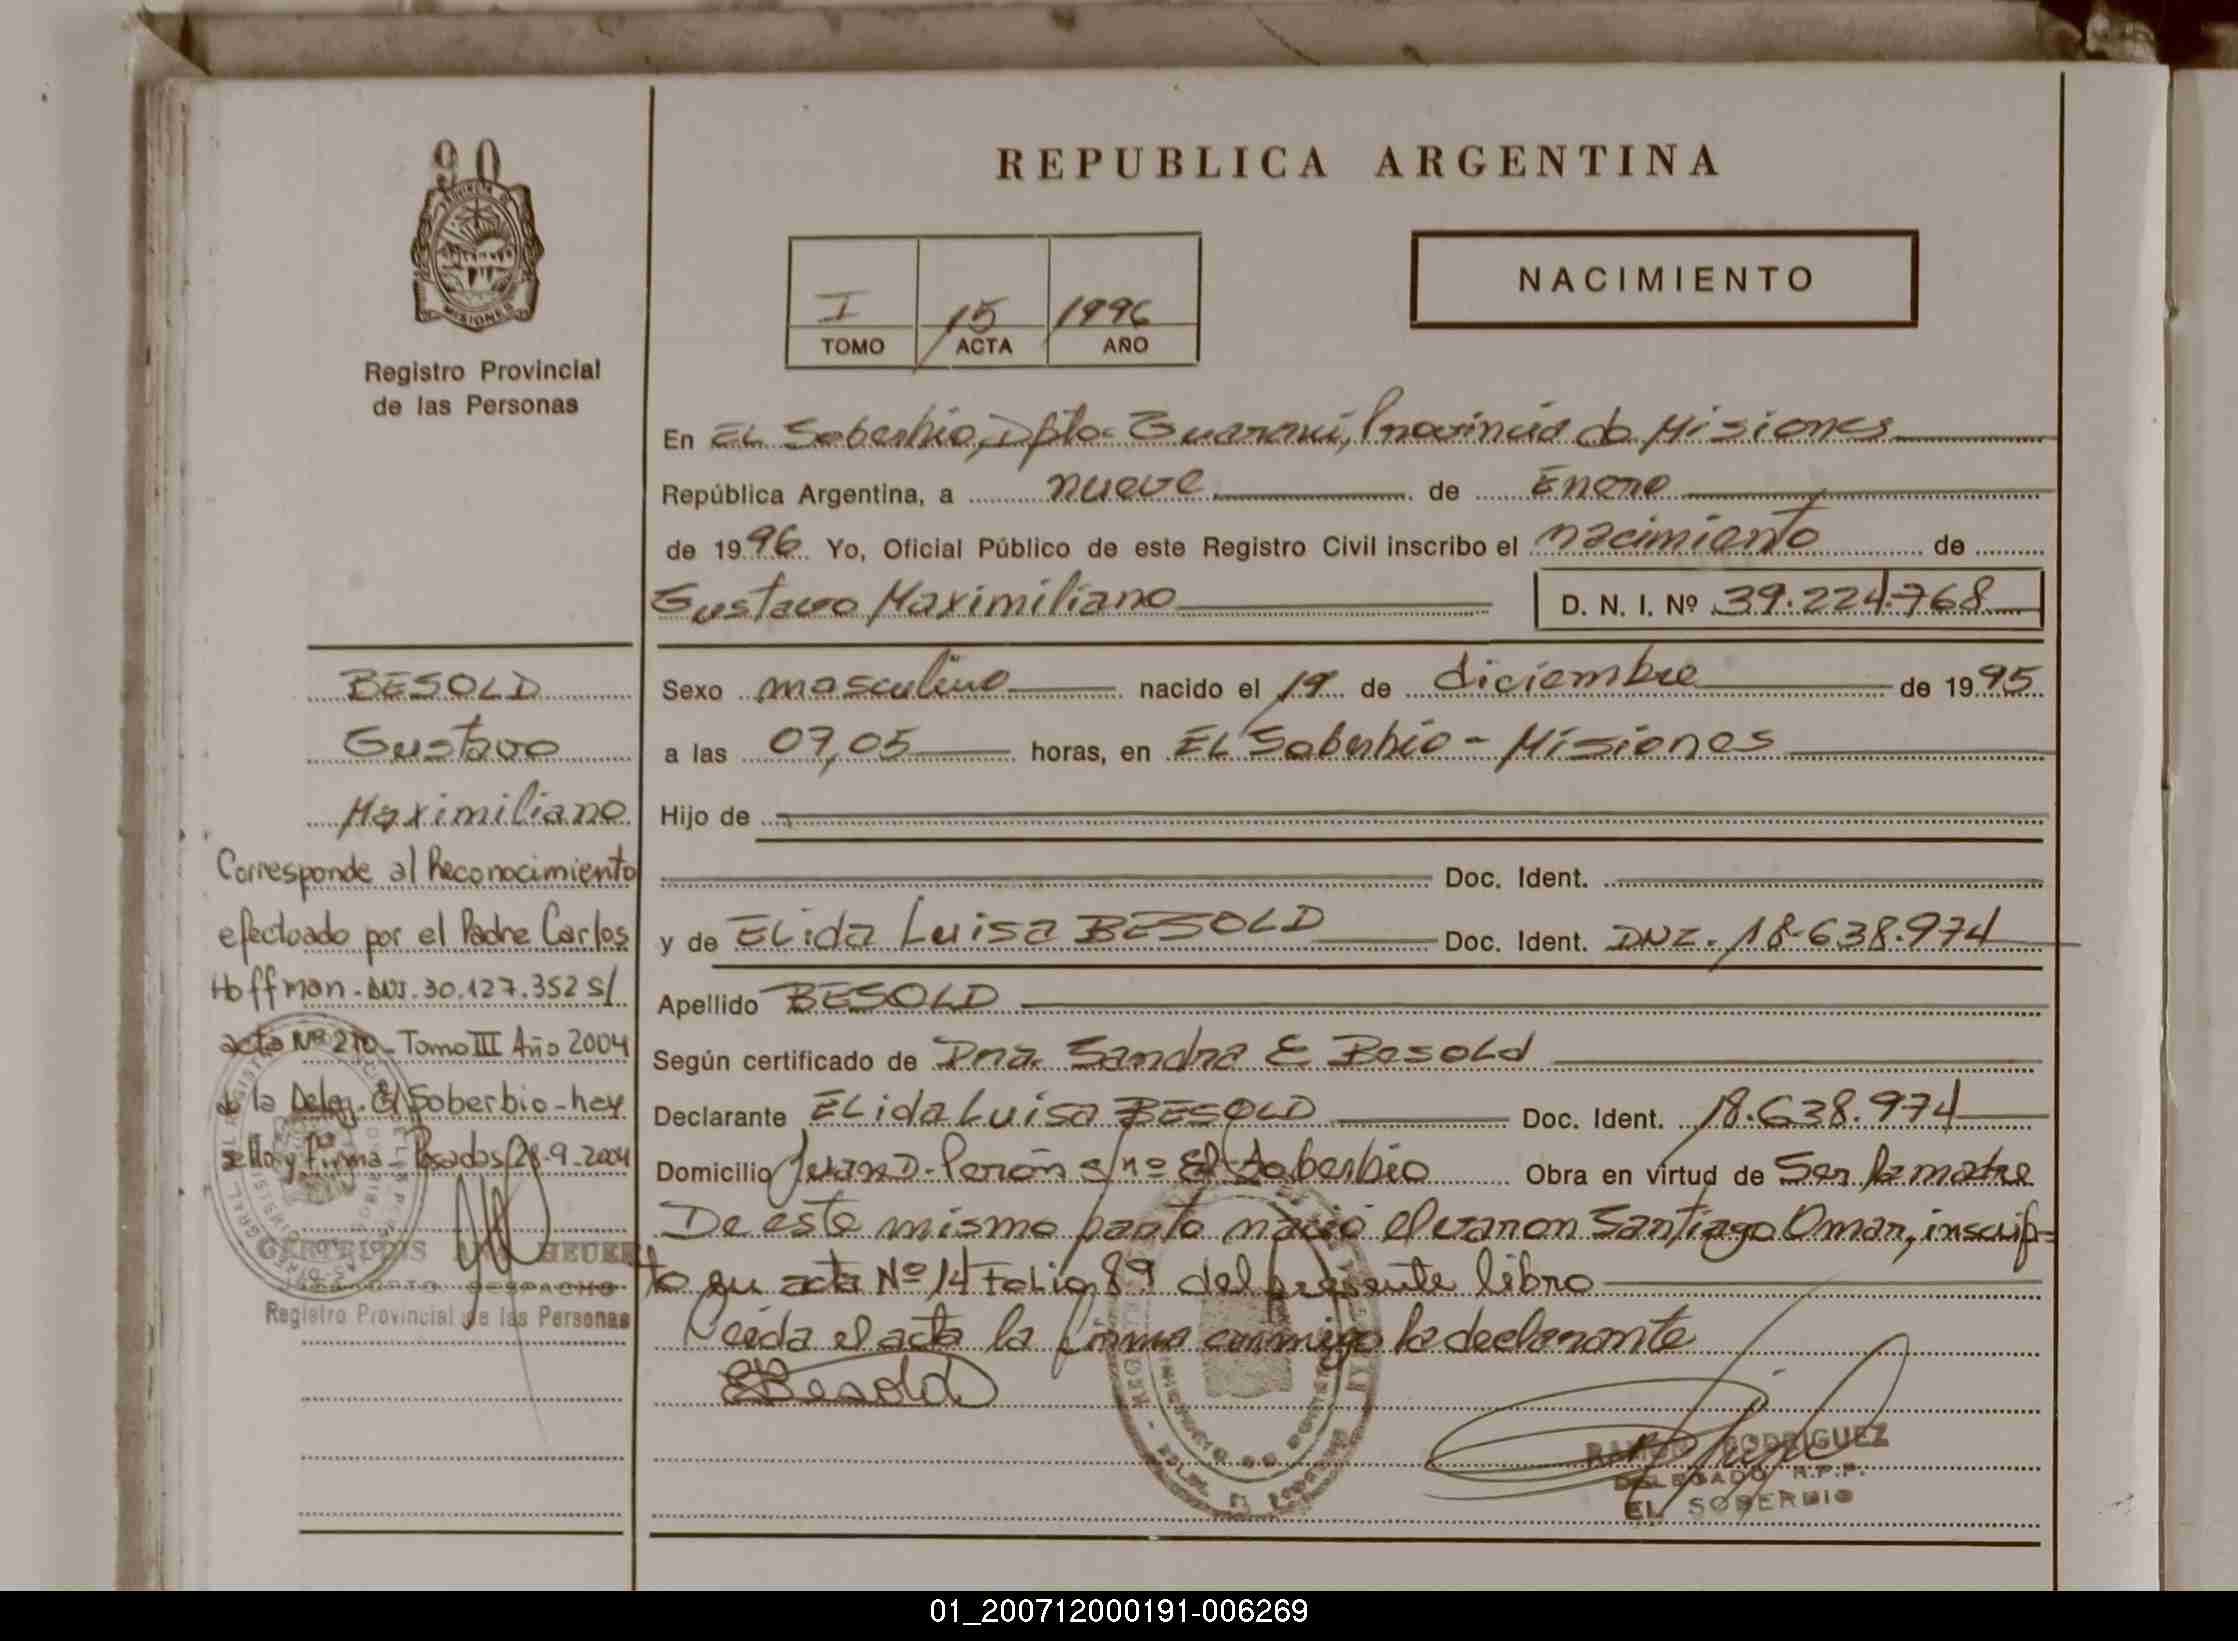 90
PROVINCIA DE
MISIONES
Registro Provincial
de las Personas
REPUBLICA ARGENTINA
I 15 1996
TOMO ACTA AÑO
NACIMIENTO
En EL Soberbio, Dpto. Guaraní, Provincia de Misiones
República Argentina, a nueve de Enero
de 1996 Yo, Oficial Público de este Registro Civil inscribo el nacimiento de
Gustavo Maximiliano D. N. I. Nº 39.224.768
Sexo masculino nacido el 19 de diciembre de 1995
a las 07,05 horas, en EL Soberbio - Misiones
Hijo de
Doc. Ident.
y de ELida Luisa BESOLD Doc. Ident. DNI. 18.638.974
Apellido BESOLD
Según certificado de Dra. Sandra E Besold
Declarante ELida Luisa BESOLD Doc. Ident. 18.638.974
Domicilio Juan D. Perón s/nº El Soberbio Obra en virtud de Ser la madre
De este mismo parto nació el varon Santiago Omar, inscrip=
to en acta Nº 14 Folio 89 del presente libro
Leida el acta la firma conmigo la declarante
EBesold
RAMON RODRIGUEZ
DELEGADO R.P.P.
EL SOBERBIO
BESOLD
Gustavo
Maximiliano
Corresponde al Reconocimiento
efectuado por el Padre Carlos
Hoffman - DNI. 30.127.352 s/
acta Nº 210 - Tomo III Año 2004
de la Deleg. El Soberbio - hay
sello y Firma - Posadas 28-9-2004
DESPACHO
Registro Provincial de las Personas
01_200712000191-006269